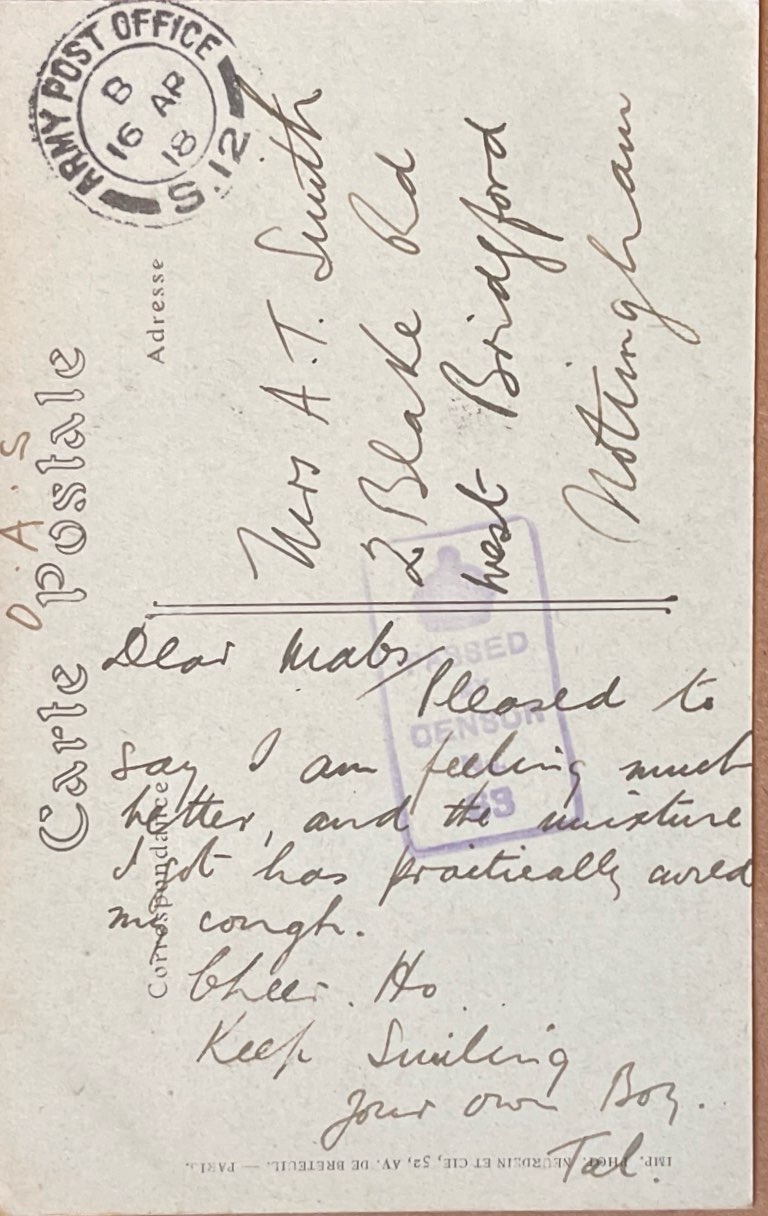 ARMY POST OFFICE
B
16 AP
18
S.12
O. A. S
Carte Postale
Adresse
Mrs A. T. Smith
2 Blake Rd
West Bridgford
Nottingham
PASSED
BY
CENSOR
Correspondance
Dear Mabs,
Pleased to
say I am feeling much
better, and the mixture
I got has practically cured
my cough.
Cheer. Ho
Keep Smiling
your own Boy.
Tal.
IMP. PHOT. NEURDEIN ET CIE, 52, AV. DE BRETEUIL. — PARIS.